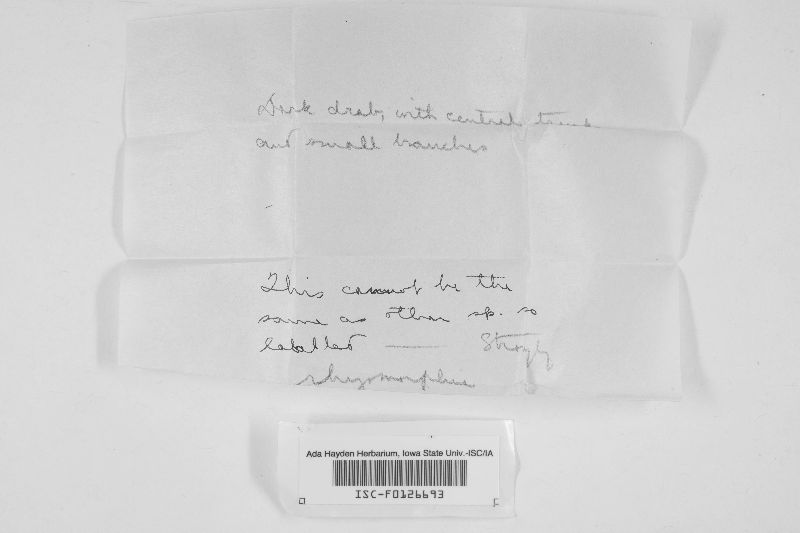 Dark drab, with central trunk
and small branches
This cannot be the
same as other sp. so
labelled ——— Strongly
rhizomorphic
Ada Hayden Herbarium, Iowa State Univ.-ISC/IA
ISC-F0126693